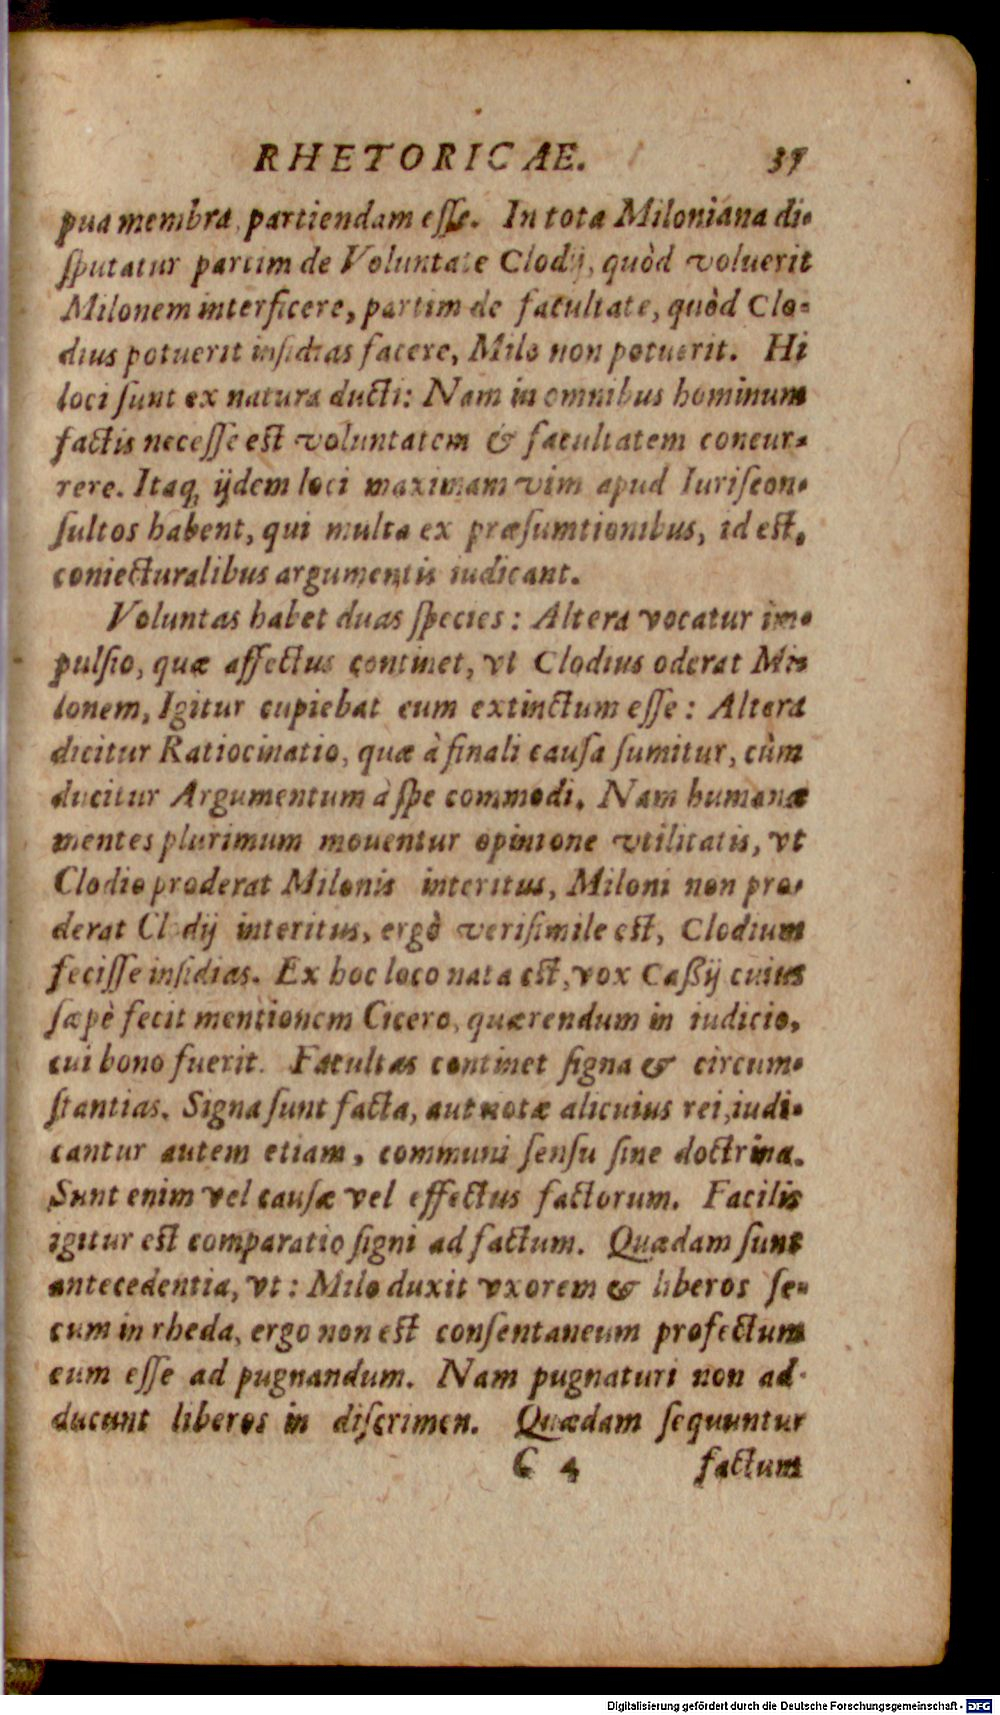 RHETORICAE. 37
pua membra, partiendam eſſe. In tota Miloniana di-
ſputatur partim de Voluntate Clodij, quòd voluerit
Milonem interficere, partim de facultate, quòd Clo-
dius potuerit inſidias facere, Milo non potuerit. Hi
loci ſunt ex natura ducti: Nam in omnibus hominum
factis neceſſe est voluntatem & facultatem concur-
rere. Itaq; ijdem loci maximam vim apud Iuriſcon-
ſultos habent, qui multa ex præſumtionibus, id est,
coniecturalibus argumentis iudicant.
Voluntas habet duas ſpecies: Altera vocatur im-
pulſio, quæ affectus continet, vt Clodius oderat Mi-
lonem, Igitur cupiebat eum extinctum eſſe: Altera
dicitur Ratiocinatio, quæ à finali cauſa ſumitur, cùm
ducitur Argumentum à ſpe commodi. Nam humanæ
mentes plurimum mouentur opinione vtilitatis, vt
Clodio proderat Milonis interitus, Miloni non pro-
derat Clodij interitus, ergò veriſimile est, Clodium
feciſſe inſidias. Ex hoc loco nata est, vox Caßij cuius
ſæpè fecit mentionem Cicero, quærendum in iudicio,
cui bono fuerit. Facultas continet ſigna & circum-
ſtantias. Signa ſunt facta, aut notæ alicuius rei, iudi-
cantur autem etiam, communi ſenſu ſine doctrina.
Sunt enim vel cauſæ vel effectus factorum. Facilis
igitur est comparatio ſigni ad factum. Quædam ſunt
antecedentia, vt: Milo duxit vxorem & liberos ſe-
cum in rheda, ergo non est conſentaneum profectum
eum eſſe ad pugnandum. Nam pugnaturi non ad-
ducunt liberos in diſcrimen. Quædam ſequuntur
C 4 factum
Digitalisierung gefördert durch die Deutsche Forschungsgemeinschaft - DFG